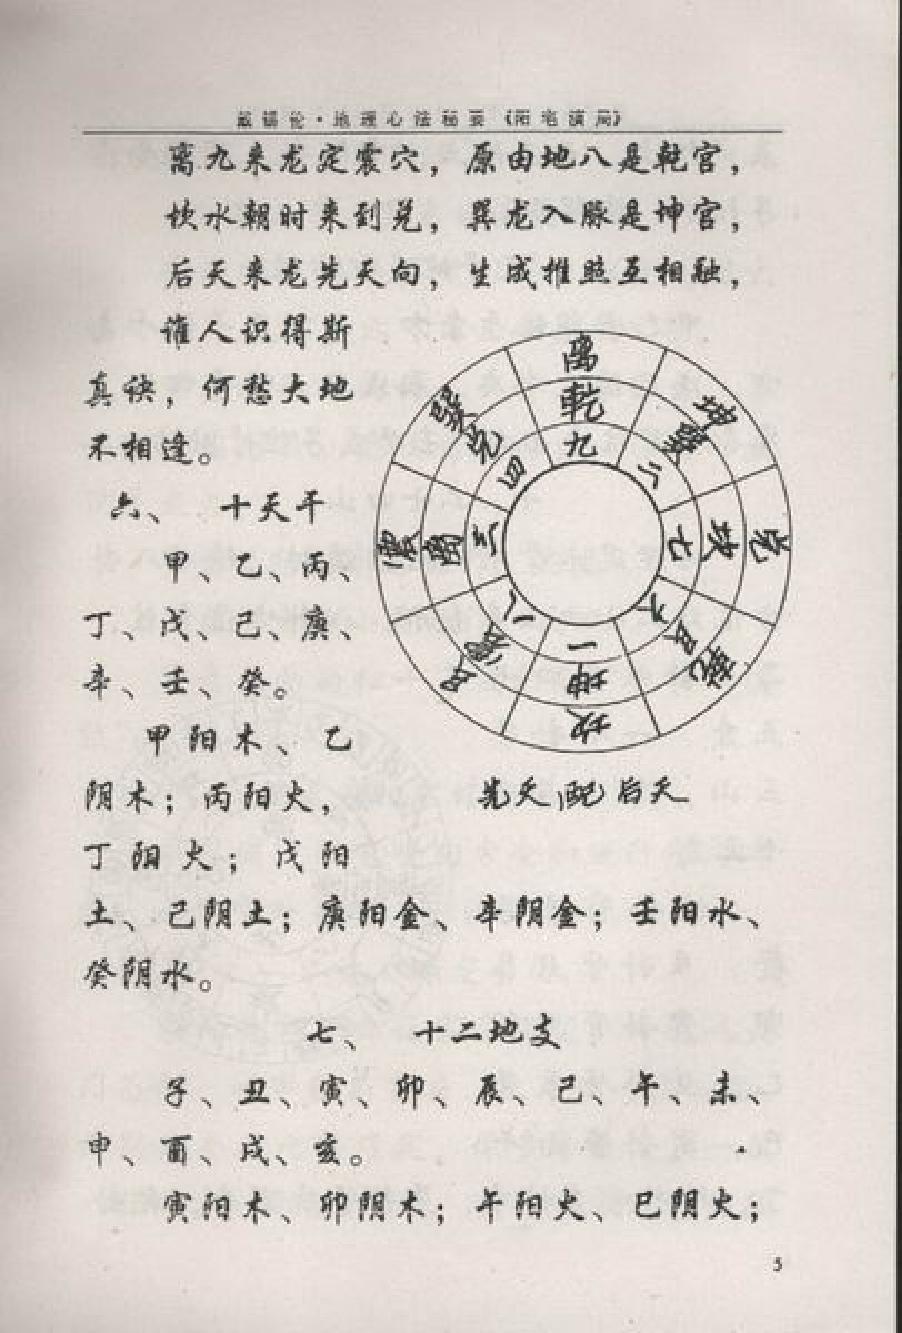 戴锡伦·地理心法秘要《阳宅演局》
离九来龙定震穴，原由地八是乾宫，
坎水朝时来到兑，巽龙入脉是坤宫，
后天来龙先天向，生成推照互相融，
谁人识得斯
真诀，何愁大地
不相逢。
六、 十天干
甲、乙、丙、
丁、戊、己、庚、
辛、壬、癸。
甲阳木、乙
阴木；丙阳火，
丁阴火；戊阳
土、己阴土；庚阳金、辛阴金；壬阳水、
癸阴水。
离
乾
九
坤
巽
二
兑
坎
七
乾
艮
六
坎
坤
一
艮
震
八
震
离
三
巽
兑
四
先天配后天
七、 十二地支
子、丑、寅、卯、辰、巳、午、未、
申、酉、戌、亥。
寅阳木、卯阴木；午阳火、巳阴火；
5